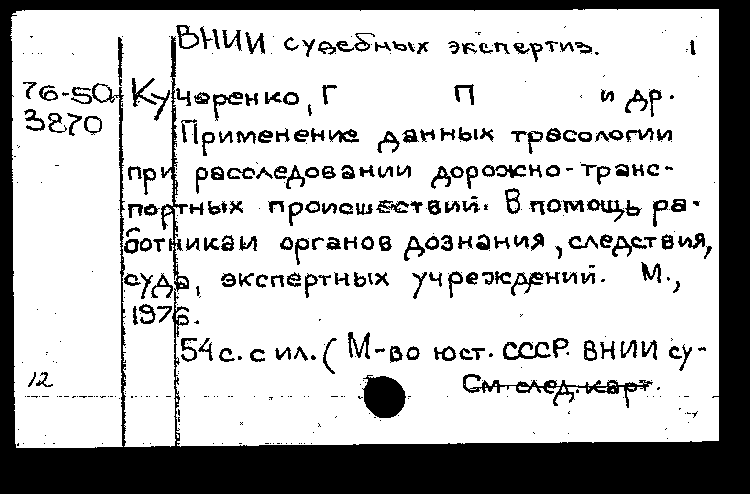 ВНИИ судебных экспертиз. 1
76-50 Кучеренко, Г П и др.
3870
Применение данных трасологии
при расследовании дорожно-транс-
портных происшествий. В помощь ра-
ботникам органов дознания, следствия,
суда, экспертных учреждений. М.,
1976.
54 с. с ил. (М-во юст. СССР. ВНИИ су-
12
См. след. карт.